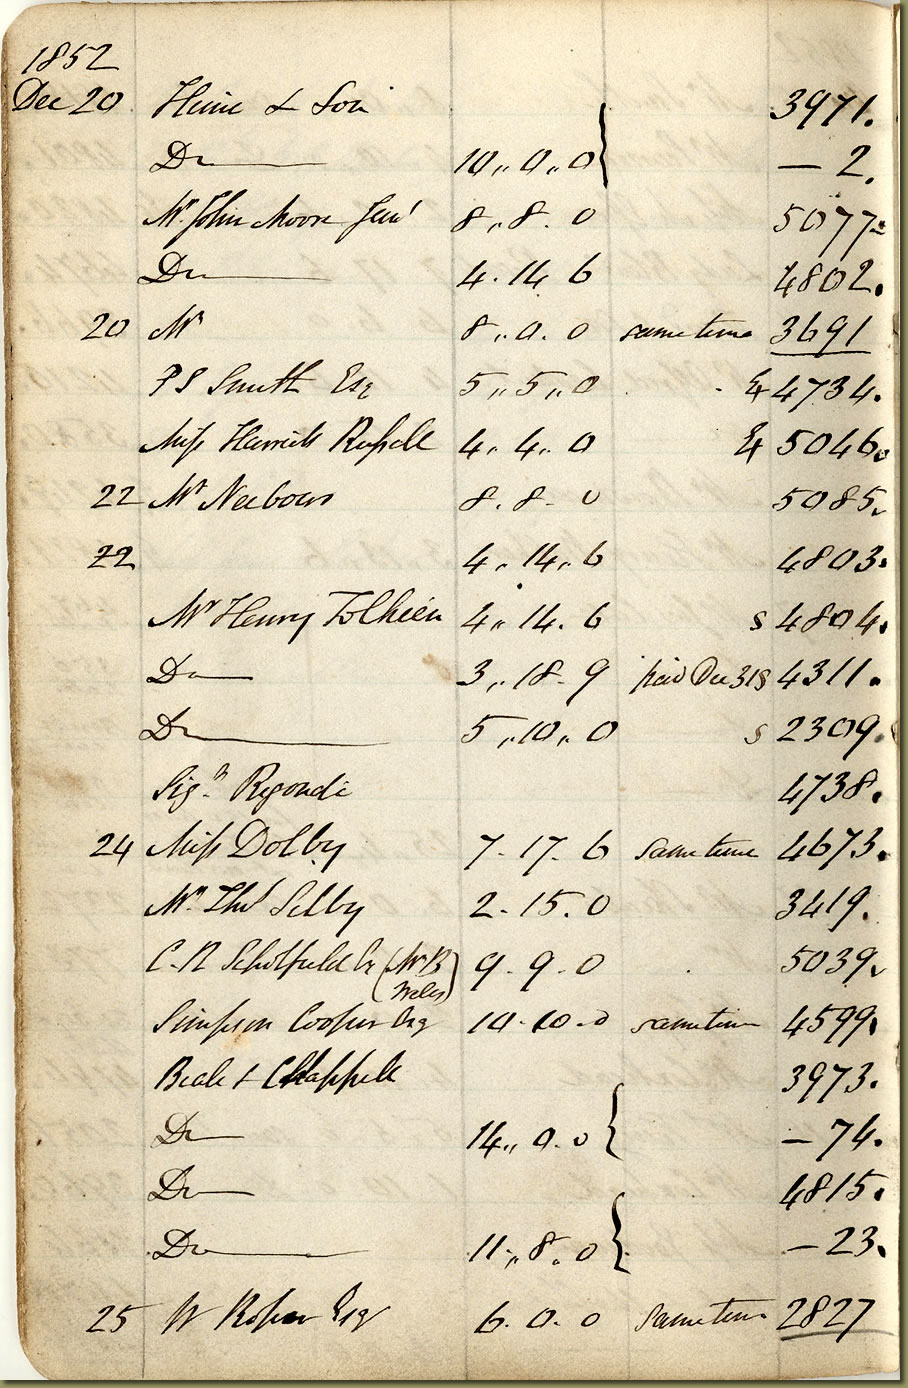 1852
Dec 20 Heine & Son 3971.
Do 10,,0,,0 } — 2.
Mr. John Moore Senr 8,,8.0 5077.
Do 4.14 6 4802.
20 Mr 8,,0.0 same time 3691
P S Smith Esq 5,,5,,0 4734.
Miss Harriett Russell 4,,4,,0 5046.
22 Mr Neebour 8.8-0 5085.
22 4,,14,,6 4803.
Mr Henry Tolkien 4,,14.6 s 4804.
Do 3,,18-9 paid Dec 31 s 4311.
Do 5,,10,,0 s 2309.
Sigr. Regondi 4738.
24 Miss Dolby 7-17-6 same time 4673.
Mr. Thos Selby 2-15.0 3419.
C-R Scholfield Esq (Mr B Wells) 9-9-0 5039.
Simpson Cooper Esq 10-10-0 same time 4599.
Beale & Chappell 3973.
Do 14,,0.0 } — 74.
Do 4815.
Do 11,,8,,0 } — 23.
25 W Roper Esq 6.0.0 same time 2827